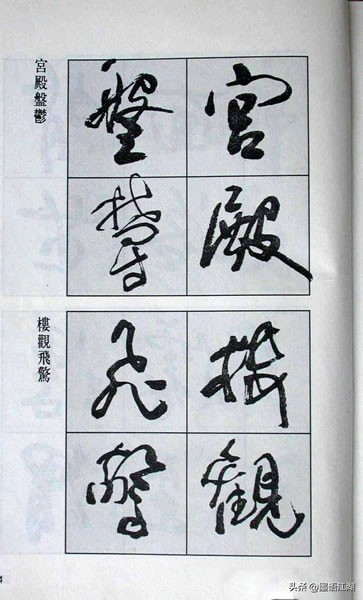 宮殿盤鬱
宮殿
盤鬱
樓觀飛驚
樓觀
飛驚
4
头条@墨语江湖